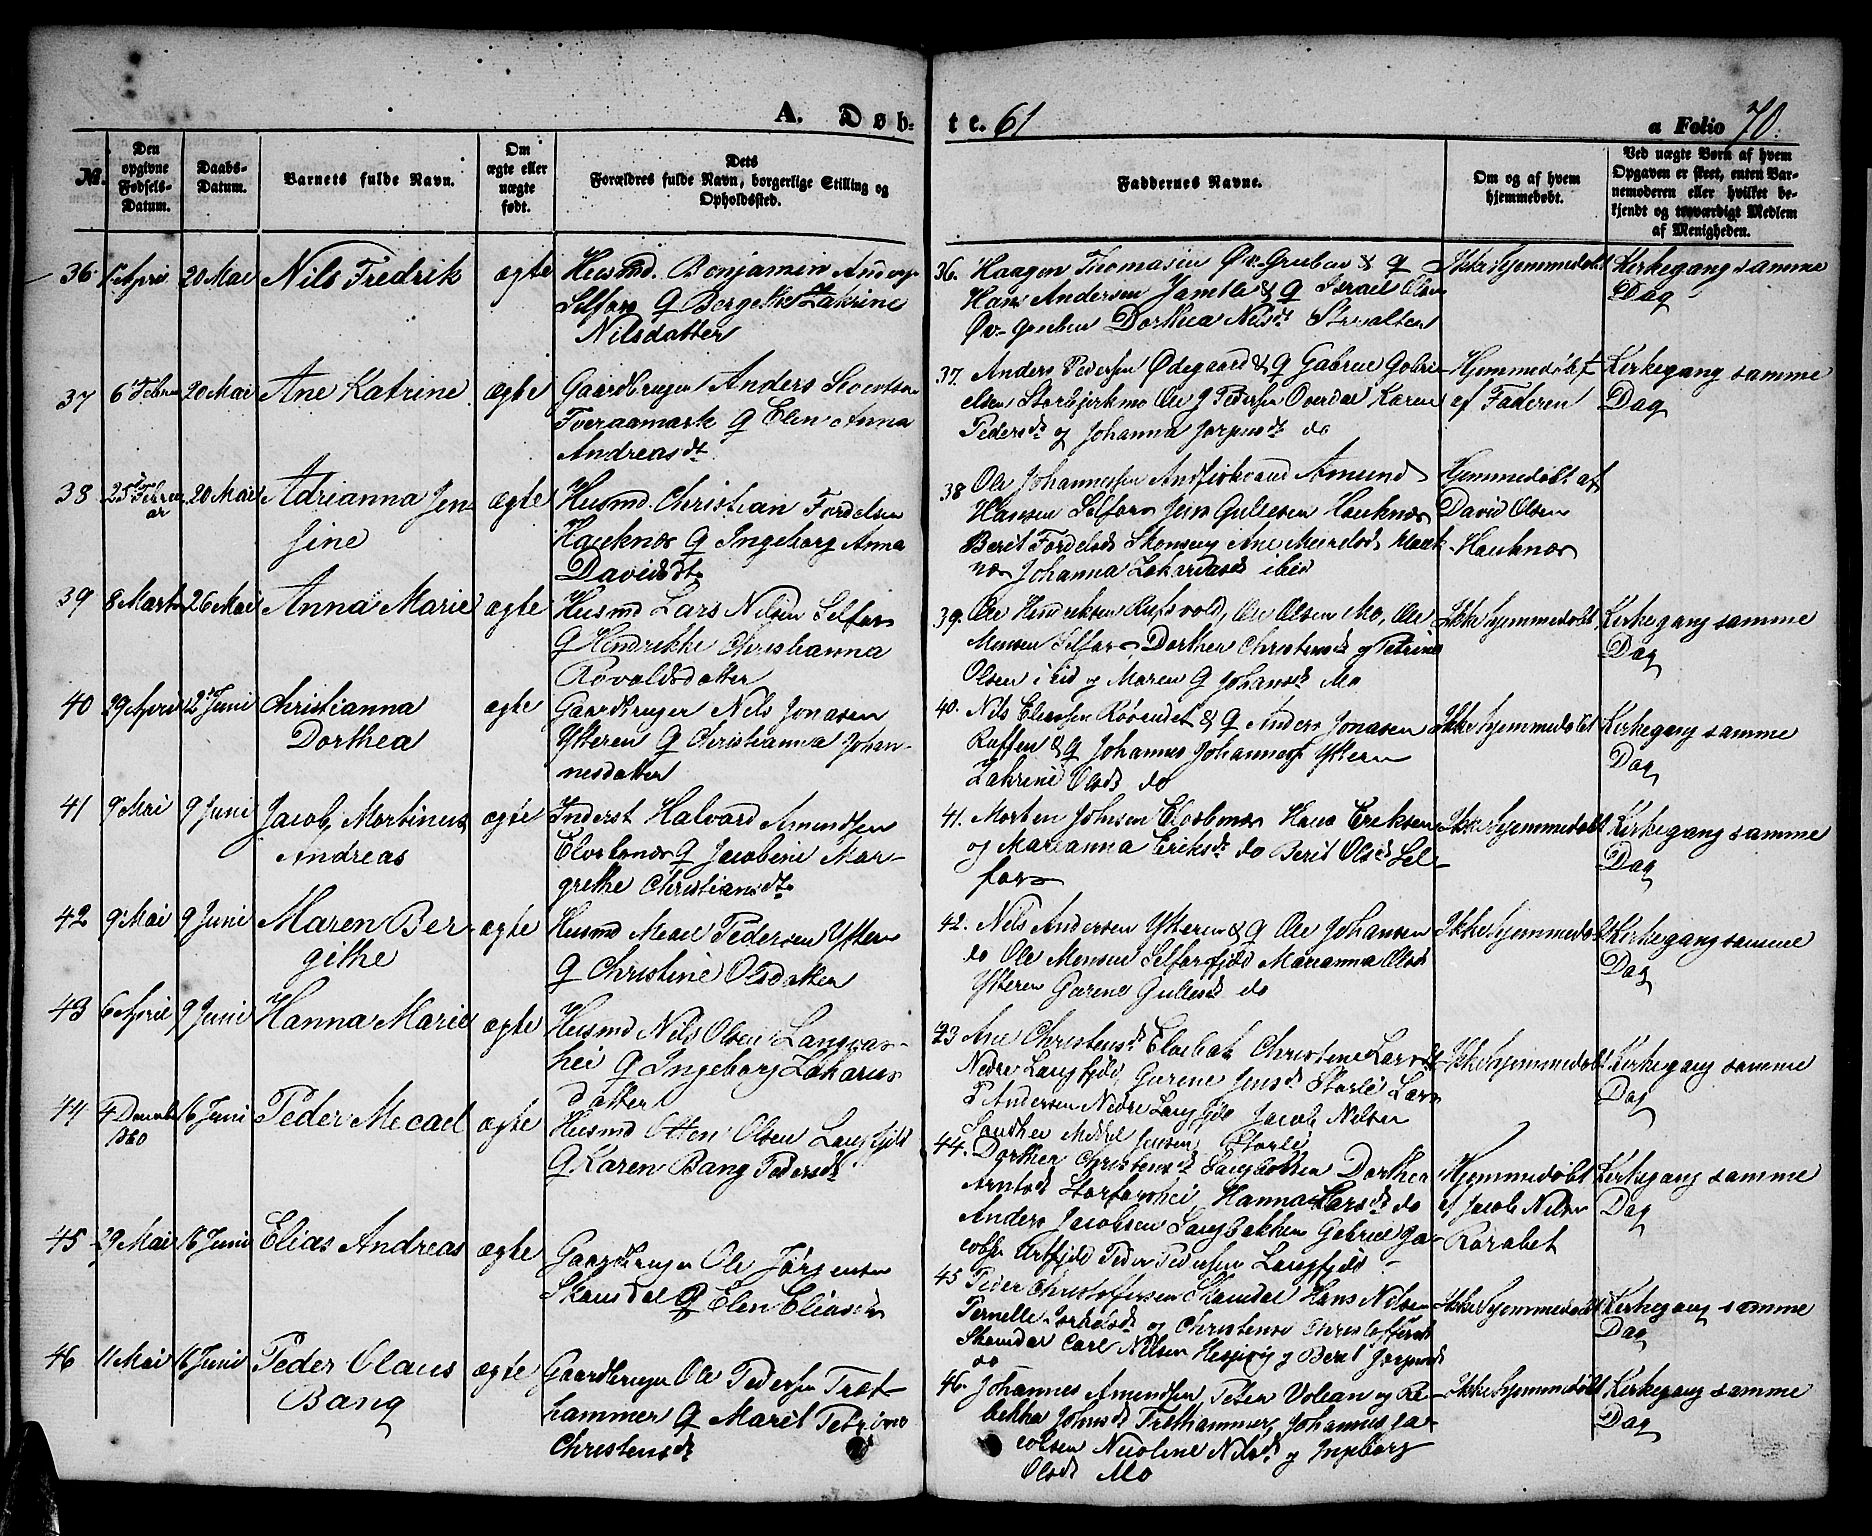 A. Døb-
te. 61
a Folio 70.
No.
Den opgivne Fødsels-Datum.
Daabs-Datum.
Barnets fulde Navn.
Om ægte eller uægte født.
Dets Forældres fulde Navn, borgerlige Stilling og Opholdssted.
Faddernes Navne.
Om og af hvem hjemmedøbt.
Ved uægte Børn af hvem Opgaven er skeet, enten Barnemoderen eller hvilket bekjendt og troværdigt Medlem af Menigheden.
36 1 April 20 Mai Nils Fredrik ægte Husmd. Benjamin Anders
Selfors G Zakrine
Nilsdatter
36. Haagen Thomasen Øv-Gruben & G
Hans Andersen Jamtli & G Israel Olsen
Øv-Gruben Dorthea Nilsdt
Ikke hjemmedøbt Kirkegang samme
Dag
37 6 Februar 20 Mai Ane Katrine ægte Gaardbruger Anders
Tveraamark G Elen Anna
Andreasdt
37. Anders Pedersen Ødegaard & G Gabriel Gabri-
elsen Storbjerkmo Ole J Pedersen Karen
Pedersdt og Johanna do
Hjemmedøbt
af Faderen
Kirkegang samme
Dag
38 25 Februar 20 Mai Adrianna Jen-
sine
ægte Husmd. Christian Fordelsen
Hauknes G Ingeborg Anna
Davidsdt
38 Ole Johannesen Amund
Hansen Selfors Jens Gullesen Hauknes
Berit Fordelsd Skonseng Ane
Johanna ibid
Hjemmedøbt af
David Olsen
Hauknes
39 8 Marts 26 Mai Anna Marie ægte Husmd Lars Nilsen Selfors
G Hendrikke Christianna
Rovoldsdatter
39. Ole Hendriksen Ole Olsen Mo, Ole
Monsen Selfors, Dorthea Christensd og Petrine
Olsen ibid og Maren G Johansdt Mo
Ikke hjemmedøbt Kirkegang samme
Dag
40 29 April 2 Juni Christianna
Dorthea
ægte Gaardbruger Nils Jonasen
Ytteren G Christianna Johan-
nesdatter
40. Nils Eliassen & G Anders Jonasen
& G Johannes Johannesen Ytteren
Zakrine Olsdt do
Ikke hjemmedøbt Kirkegang samme
Dag
41 9 Mai 9 Juni Jacob Martinus
Andreas
ægte Inderst Halvard Amundsen
G Jacobine Mar-
grethe Christiansdt
41. Morten Johnsen Hans Eriksen
og Marianna Eriksdt do Berit Olsdt Sel-
fors
Ikke hjemmedøbt Kirkegang samme
Dag
42 9 Mai 9 Juni Maren Ber-
githe
ægte Husmd Pedersen Ytteren
G Christine Olsdatter
42. Nils Andersen Ytteren & G Ole Johansen
do Ole Monsen Selforsfjeld Marianna Olsdt
Ytteren Gurine Gullesdt do
Ikke hjemmedøbt Kirkegang samme
Dag
43 6 April 9 Juni Hanna Marie ægte Husmd Nils Olsen
G Ingeborg Zakarias-
datter
43 Ane Christensdt Christine Larsdt
Nedre Langfjeld, Gurine Jensdt Storli Lars
P Andersen Nedre Langfjeld Jacob Nilsen
Mikkel Jensen Storli
Ikke hjemmedøbt Kirkegang samme
Dag
44 4 Decembr
1860
16 Juni Peder Mecael ægte Husmd Otten Olsen Langfjeld
G Karen Bang Pedersdt
44. Dorthea Christensdt Langbakken Dorthea
Arntsdt Storforshei Hanna Larsdt do
Anders Jacobsen Langbakken Gabriel Ja-
cobsen Urtfjeld Peder Pedersen Langfjeld
Hjemmedøbt
af Jacob Nilsen
Rørabet
Kirkegang samme
Dag
45 29 Mai 16 Juni Elias Andreas ægte Gaardbruger Ole Jørgensen
Skamdal G Elen Eliasdt
45 Peder Christoffersen Skamdal Hans Nilsen
Pernelle og Christense Christoffersdt
Skamdal Carl Nilsen og Berit
do
Ikke hjemmedøbt Kirkegang samme
Dag
46 11 Mai 16 Juni Peder Olaus
Bang
ægte Gaardbruger Ole Pedersen Træt-
hammer G Marit Petrine
Christensdt
46. Johannes Amundsen Peter Volean og Re-
bekka Johnsdt Træthammer, Johannes Ja-
cobsen Nicoline Nilsdt og Ingeborg
Olsdt Mo
Ikke hjemmedøbt Kirkegang samme
Dag